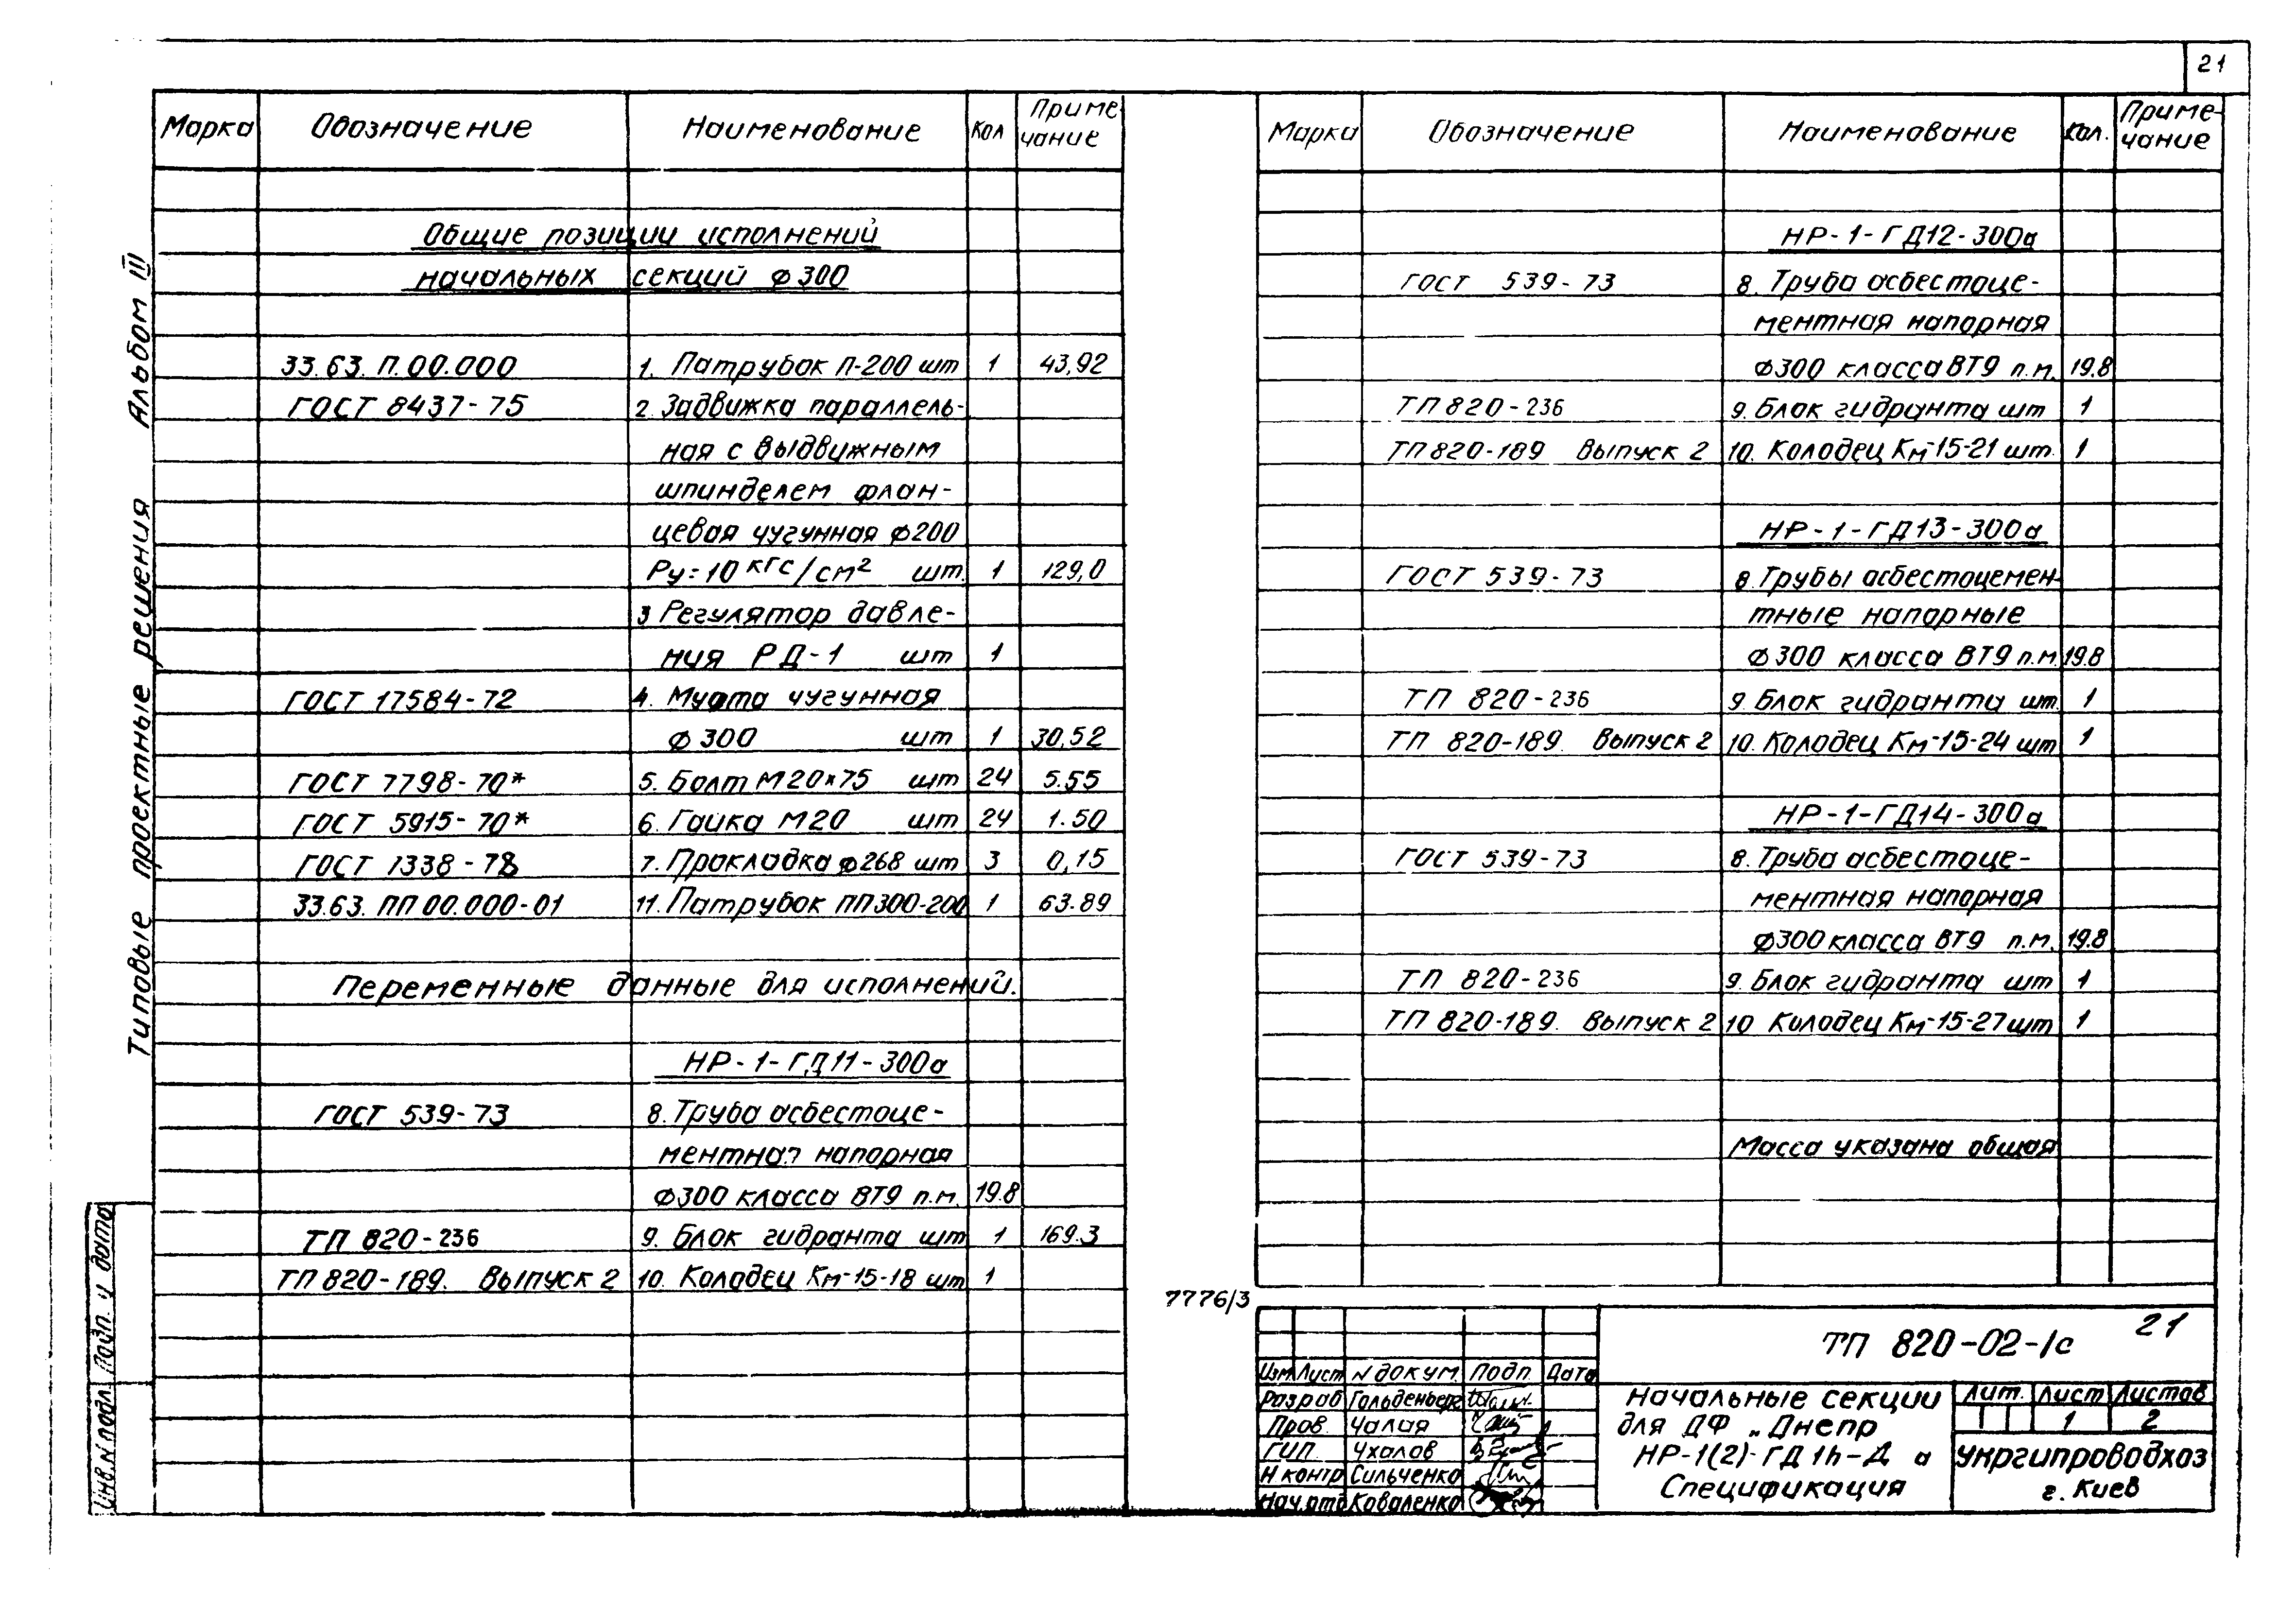 21
Типовые проектные решения Альбом III
Марка Обозначение Наименование Кол Приме
чание
Общие позиции исполнений
начальных секций ф300
33.63. П.00.000 1. Патрубок П-200 шт 1 43,92
ГОСТ 8437-75 2. Задвижка параллель-
ная с выдвижным
шпинделем флан-
цевая чугунная ф200
Ру=10 кгс/см² шт. 1 129,0
3 Регулятор давле-
ния РД-1 шт 1
ГОСТ 17584-72 4. Муфта чугунная
ф300 шт 1 30,52
ГОСТ 7798-70* 5. Болт М20×75 шт 24 5.55
ГОСТ 5915-70* 6. Гайка М20 шт 24 1.50
ГОСТ 1338-78 7. Прокладка ф268 шт 3 0,15
33.63. ПП 00.000-01 11. Патрубок ПП300-200 1 63.89
Переменные данные для исполнений.
НР-1-ГД11-300а
ГОСТ 539-73 8. Труба асбестоце-
ментная напорная
ф300 класса ВТ9 п.м. 19.8
ТП 820-236 9. Блок гидранта шт 1 169.3
ТП 820-189. Выпуск 2 10. Колодец Км-15-18 шт 1
Марка Обозначение Наименование Кол. Приме-
чание
НР-1-ГД12-300а
ГОСТ 539-73 8. Труба асбестоце-
ментная напорная
ф300 класса ВТ9 п.м. 19.8
ТП 820-236 9. Блок гидранта шт 1
ТП 820-189 Выпуск 2 10. Колодец Км-15-21 шт. 1
НР-1-ГД13-300а
ГОСТ 539-73 8. Трубы асбестоцемен-
тные напорные
ф300 класса ВТ9 п.м. 19.8
ТП 820-236 9. Блок гидранта шт. 1
ТП 820-189. Выпуск 2 10. Колодец Км-15-24 шт 1
НР-1-ГД14-300а
ГОСТ 539-73 8. Труба асбестоце-
ментная напорная
ф300 класса ВТ9 п.м. 19.8
ТП 820-236 9. Блок гидранта шт 1
ТП 820-189. Выпуск 2 10 Колодец Км-15-27 шт 1
Масса указана общая
7776/3
ТП 820-02-1с 21
Изм. Лист N докум. Подп. Дата
Разраб Гольденберг
Пров. Чалая
ГИП Ухалов
Н контр Сильченко
Нач.отд Коваленко
Начальные секции
для ДФ „Днепр
НР-1(2)-ГД 1h-Д а
Спецификация
Лит. Лист Листов
1 2
Укргипроводхоз
г. Киев
Инв. N подл. Подп. и дата